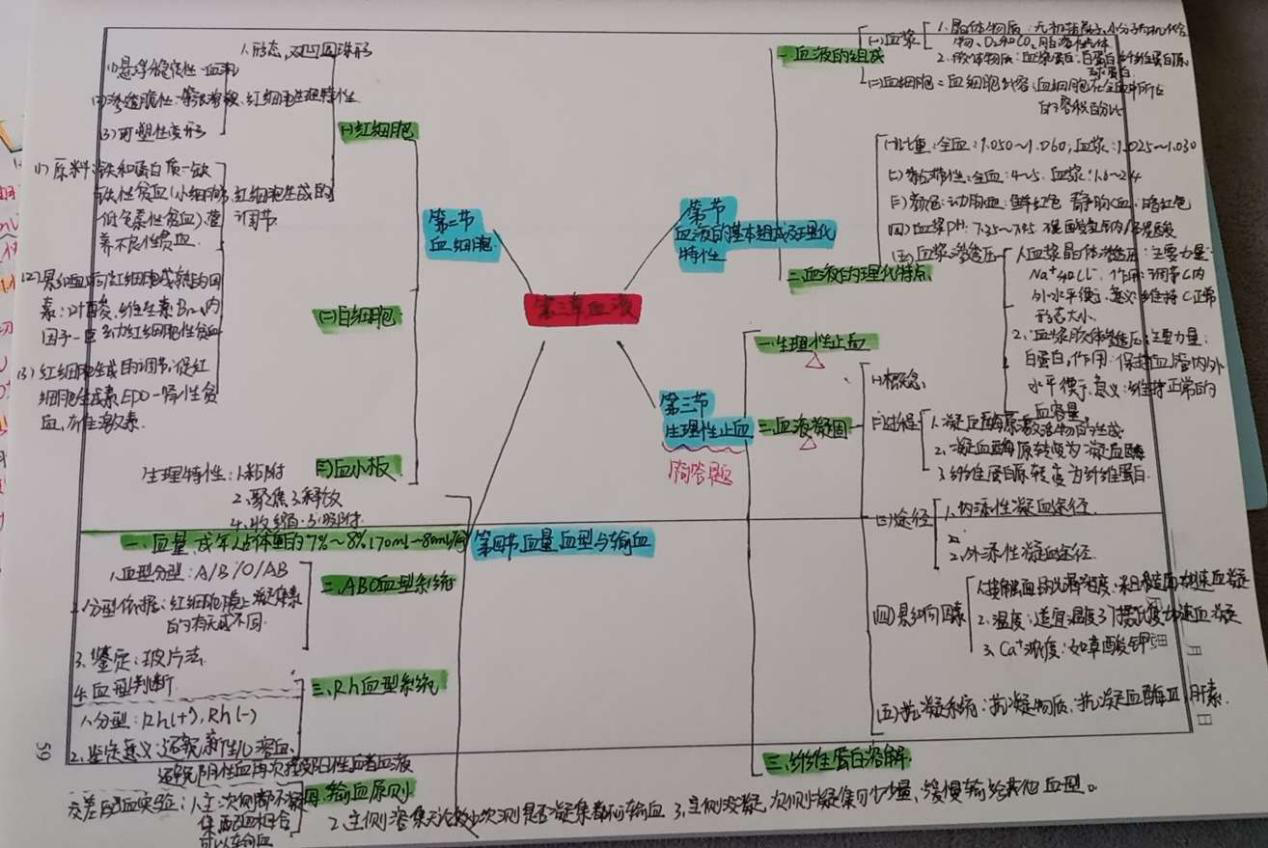 第三章血液
第一节
血液的基本组成及理化
特性
一.血液的组成
(一)血浆
1.晶体物质：无机盐离子,小分子有机化合
物、O₂和CO₂脂溶性气体
2.胶体物质：血浆蛋白：白蛋白 纤维蛋白原
球蛋白
(二)血细胞：血细胞比容：血细胞在全血中所占
的容积百分比
二.血液的理化特点
(一)比重：全血：1.050～1.060,血浆：1.025～1.030
(二)黏滞性：全血：4～5. 血浆：1.6～2.4
(三)颜色：动脉血：鲜红色 静脉血：暗红色
(四)血浆PH：7.35～7.45
(五)血浆渗透压
1.血浆晶体渗透压：主要力量：
Na⁺和Cl⁻. 作用：调节C内
外水平衡、意义：维持C正常
形态大小.
2.血浆胶体渗透压：主要力量：
白蛋白,作用：保持血管内外
水平衡、意义：维持正常的
血容量.
第二节
血细胞
(一)红细胞
1.形态、双凹圆碟形
红细胞生理特性
(1)悬浮稳定性-血沉
(2)渗透脆性-等张溶液
(3)可塑性变形
红细胞生成的
调节
(1)原料：铁和蛋白质-缺
铁性贫血(小细胞
低色素性贫血)、营
养不良性贫血.
(2)影响红细胞成熟的因
素：叶酸、维生素B₁₂、内
因子-巨幼红细胞性贫血
(3)红细胞生成的调节：促红
细胞生成素EPO-肾性贫
血,雄激素.
(二)白细胞
(三)血小板
生理特性：1.黏附
2.聚集 3.释放
4.收缩.5.吸附.
第三节
生理性止血
问答题
一.生理性止血
二.血液凝固
(一)概念.
(二)过程
1.凝血酶原激活物的生成
2.凝血酶原转变为凝血酶
3.纤维蛋白原转变为纤维蛋白.
(三)途径
1.内源性凝血途径.
2.外源性凝血途径
(四)影响因素
1.接触面的光滑程度：粗糙面加速血凝
2.温度：适宜温度
3.Ca⁺浓度：如草酸钾
(五)抗凝系统：抗凝物质、抗凝血酶III 肝素.
三.纤维蛋白溶解
第四节血量血型与输血
一.血量,成年人占体重的7%～8% (70ml～80ml/kg)
二.ABO血型系统
1.血型分型：A/B/O/AB
2.分型依据：红细胞膜上凝集原
的有无或不同.
3.鉴定：玻片法.
4.血型判断
三.Rh血型系统
1.分型：Rh(+),Rh(-)
2.鉴定意义：避免新生儿溶血、
避免阴性血再次接受阳性血者血液
四.输血原则
交叉配血实验：1.主、次侧都不凝
集 配血相合
可以输血
2.主侧凝集无论次侧是否凝集都不可输血 3.主侧没凝, 次侧凝集可少量、缓慢输给其他血型。
59